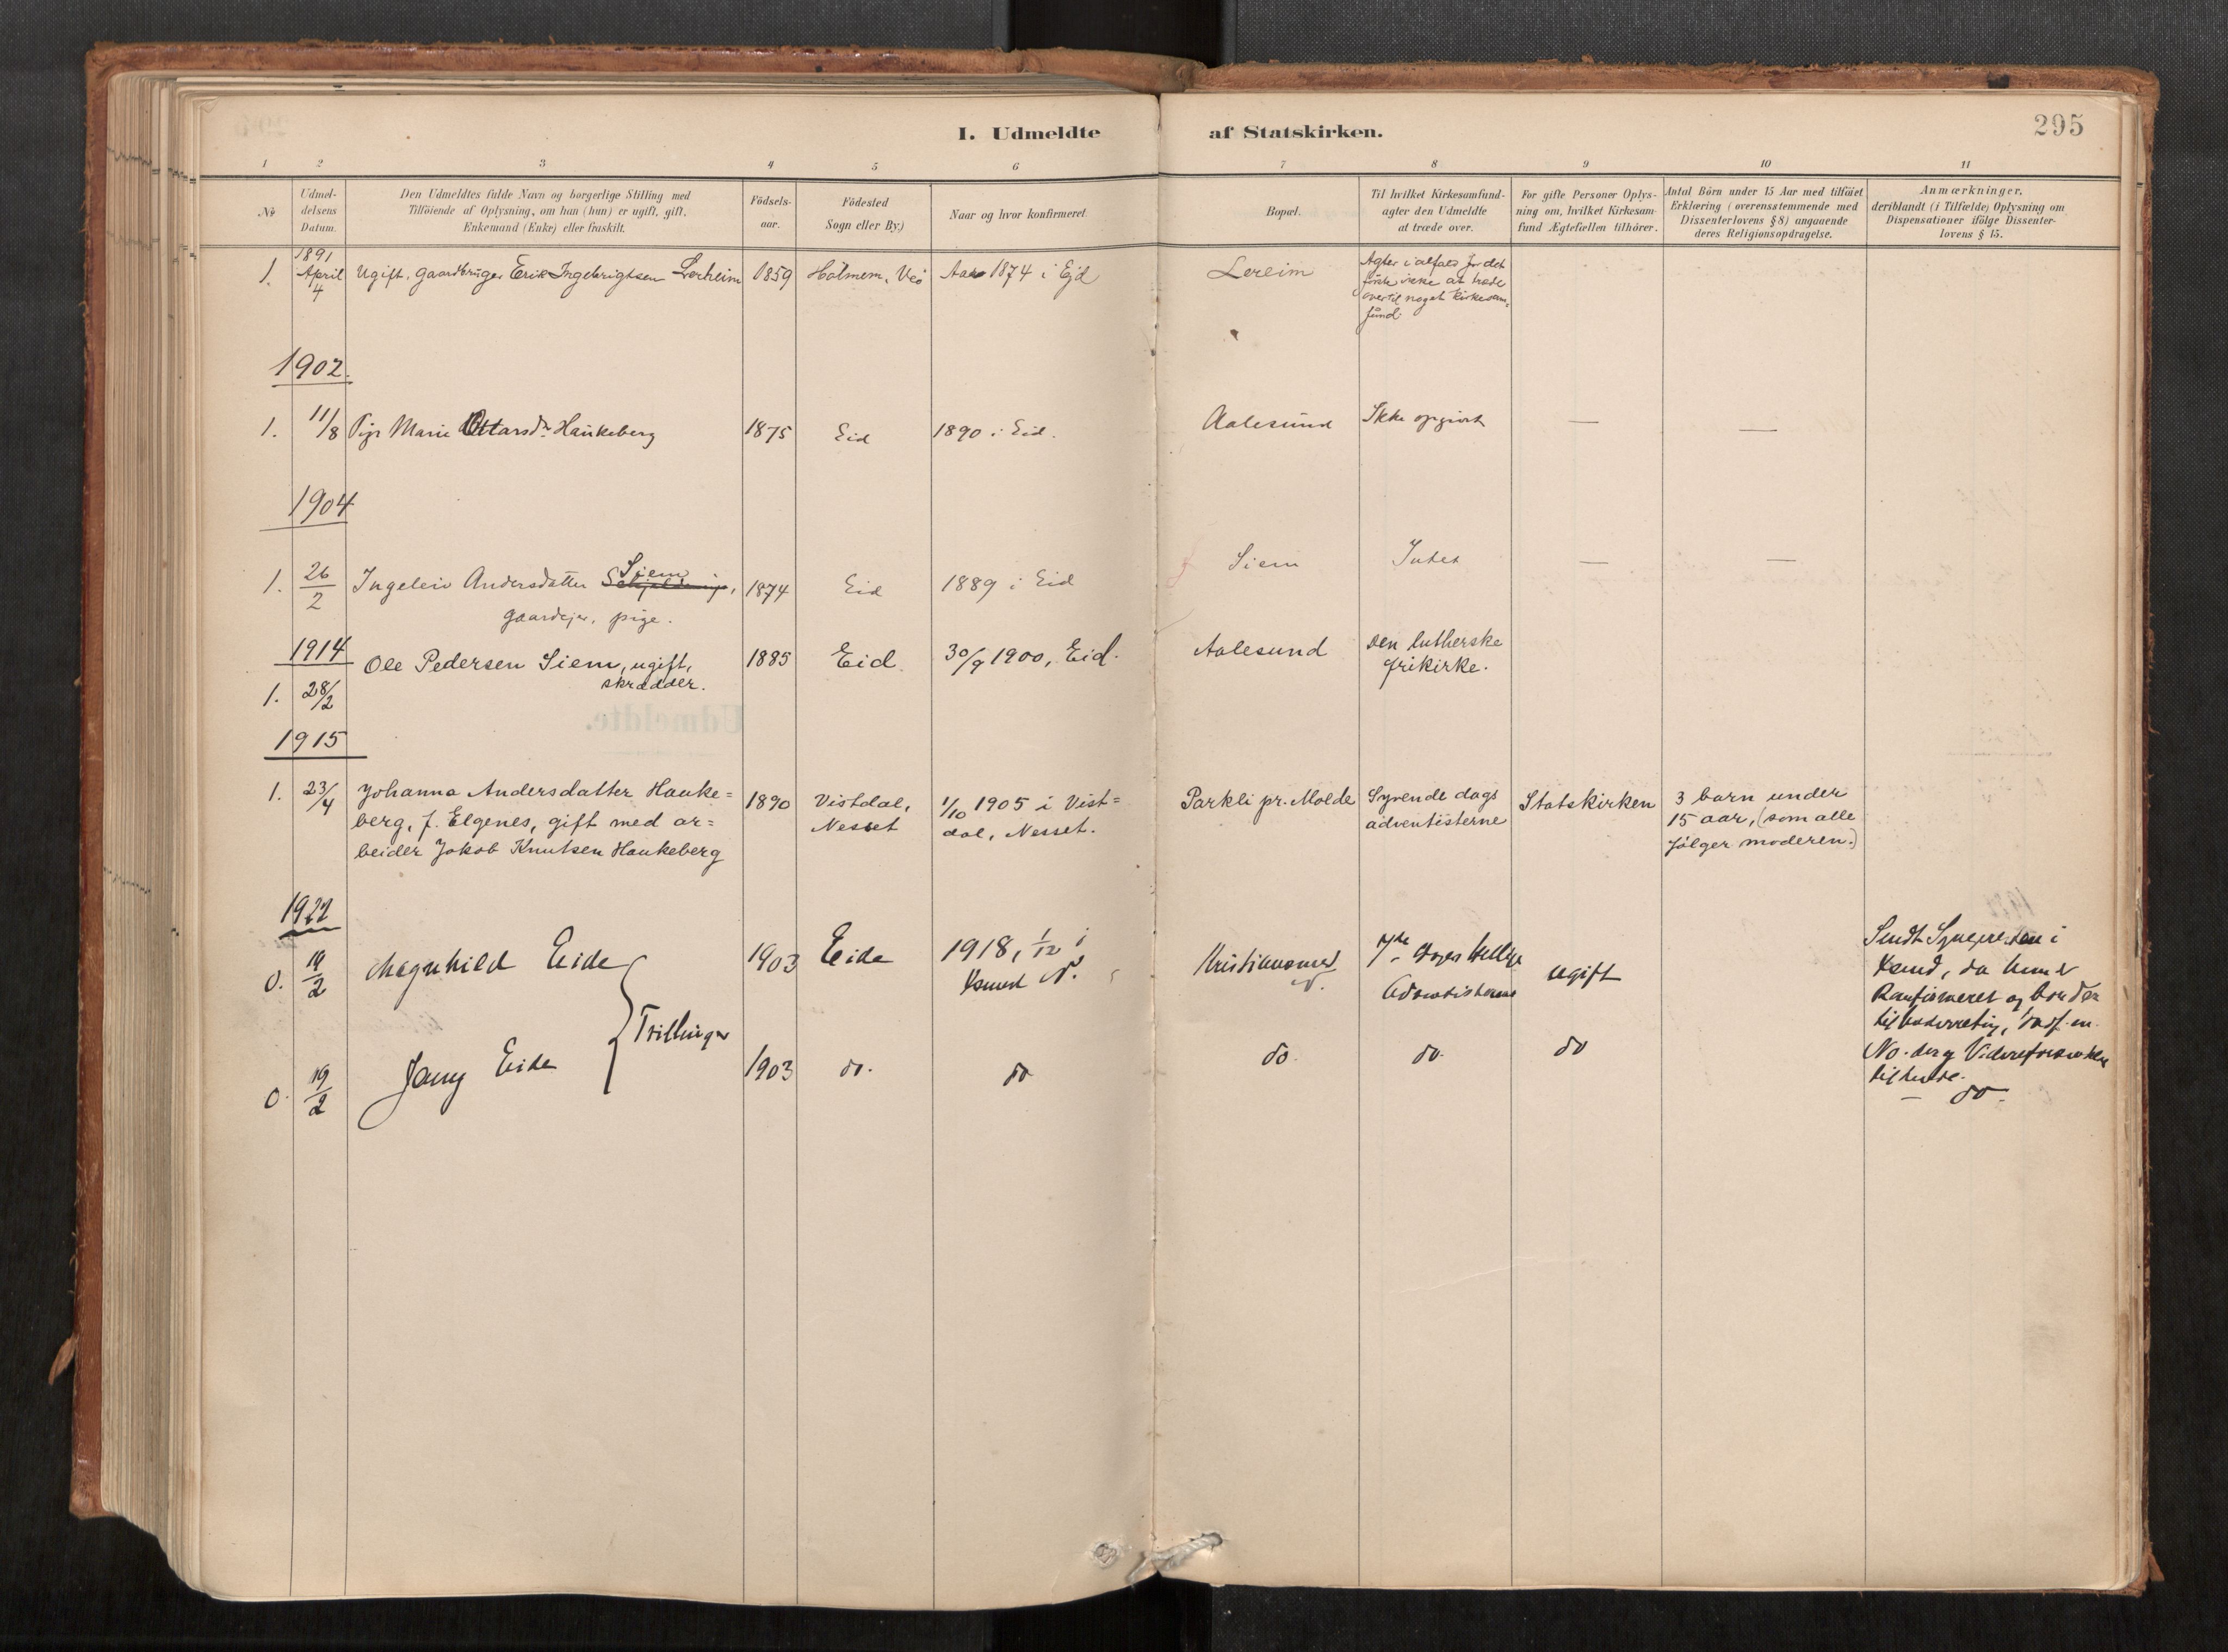 I. Udmeldte af Statskirken.
295
1 2 3 4 5 6 7 8 9 10 11
No
Udmel-
delsens
Datum.
Den Udmeldtes fulde Navn og borgerlige Stilling med
Tilföiende af Oplysning, om han (hun) er ugift, gift,
Enkemand (Enke) eller fraskilt.
Födsels-
aar.
Födested
Sogn eller By.)
Naar og hvor konfirmeret.
Bopæl.
Til hvilket Kirkesamfund-
agter den Udmeldte
at træde over.
For gifte Personer Oplys-
ning om, hvilket Kirkesam-
fund Ægtefællen tilhörer.
Antal Börn under 15 Aar med tilföiet
Erklæring (overensstemmende med
Dissenterlovens § 8) angaaende
deres Religionsopdragelse.
Anmærkninger,
deriblandt (i Tilfælde) Oplysning om
Dispensationer ifölge Dissenter-
lovens § 15.
1891
1. April 4 Ugift, gaardbruger Erik Ingebrigtsen Lerheim 1859 Holmem, Veö Aar 1874 i Ejd Lereim
Agter i alfald for det
første ikke at træde
over til noget Kirkesam-
fund.
1902.
1. 11/8 Pige Marie Ottarsdr Haukeberg 1875 Eid 1890 i Eid. Aalesund Ikke opgivet — —
1904
1. 26/2 Ingeleiv Andersdatter Siem, 1874 Eid 1889 i Eid Siem Intet — —
gaardejer, pige.
1914
Ole Pedersen Siem, ugift, 1885 Eid. 30/9 1900, Eid. Aalesund Den lutherske
skrædder. frikirke.
1. 28/2
Udmeldte.
1915
1. 23/4 Johanna Andersdatter Hauke= 1890 Vistdal, 1/10 1905 i Vist= Parkli pr. Molde Syvende dags Statskirken 3 barn under
berg, f. Elgenes, gift med ar= Nesset dal, Nesset. adventisterne 15 aar, (som alle
beider Jakob Knutsen Haukeberg følger moderen.)
1922
0. 19/2 Magnhild Eide 1903 Eide 1918, 1/12 i Kristiansund 7de Dages Hellige ugift
Ksund N. N. Adventisterne
Trillinger
Sendt Sognepresten i
Ksund, da hun er
Konfirmeret og bor der
til
No.
0. 19/2 Jenny Eide 1903 do. do do. do. do do.